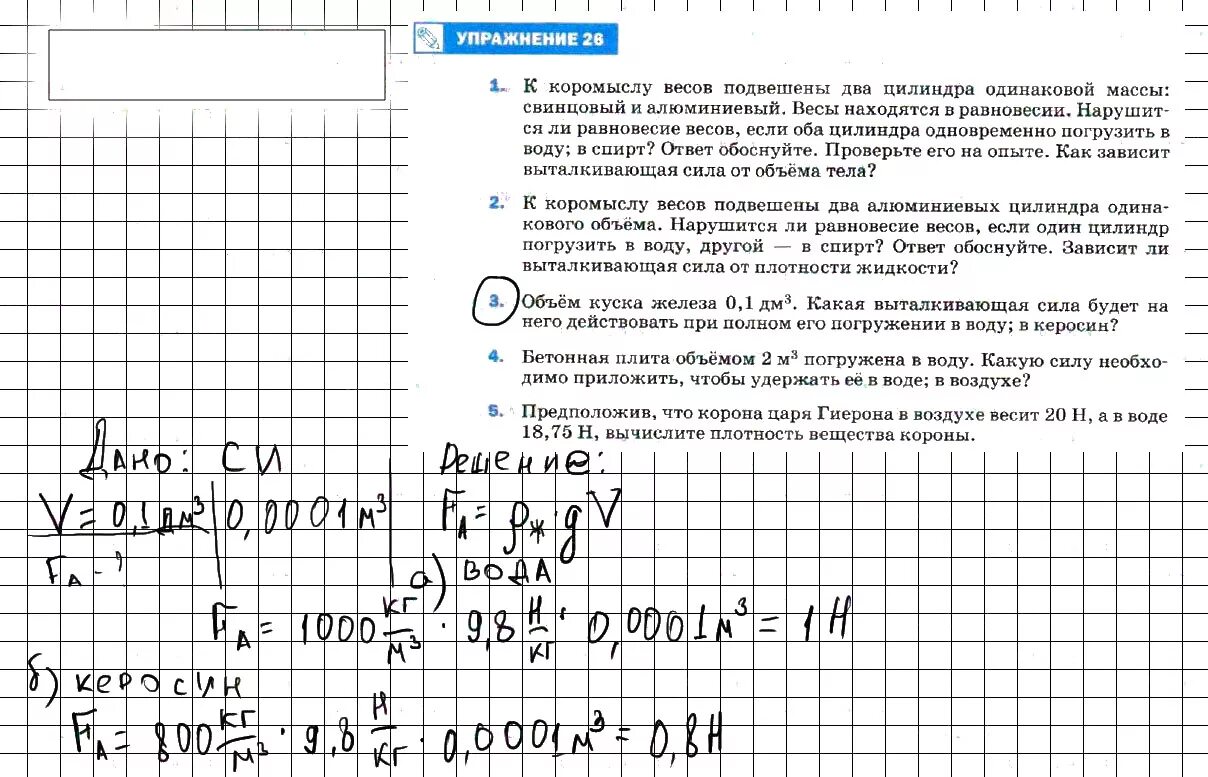 УПРАЖНЕНИЕ 26
1. К коромыслу весов подвешены два цилиндра одинаковой массы:
свинцовый и алюминиевый. Весы находятся в равновесии. Нарушит-
ся ли равновесие весов, если оба цилиндра одновременно погрузить в
воду; в спирт? Ответ обоснуйте. Проверьте его на опыте. Как зависит
выталкивающая сила от объёма тела?
2. К коромыслу весов подвешены два алюминиевых цилиндра одина-
кового объёма. Нарушится ли равновесие весов, если один цилиндр
погрузить в воду, другой — в спирт? Ответ обоснуйте. Зависит ли
выталкивающая сила от плотности жидкости?
3. Объём куска железа 0,1 дм³. Какая выталкивающая сила будет на
него действовать при полном его погружении в воду; в керосин?
4. Бетонная плита объёмом 2 м³ погружена в воду. Какую силу необхо-
димо приложить, чтобы удержать её в воде; в воздухе?
5. Предположив, что корона царя Гиерона в воздухе весит 20 Н, а в воде
18,75 Н, вычислите плотность вещества короны.
Дано: СИ Решение:
V = 0,1 дм³ 0,0001 м³ F_A = ρ_ж · g V
F_A - ?
а) вода
F_A = 1000 кг/м³ · 9,8 Н/кг · 0,0001 м³ = 1 Н
б) керосин
F_A = 800 кг/м³ · 9,8 Н/кг · 0,0001 м³ = 0,8 Н